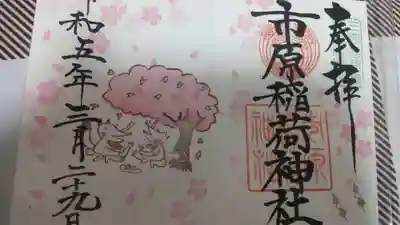 奉拝
市原稲荷神社
令和五年三月二十九日